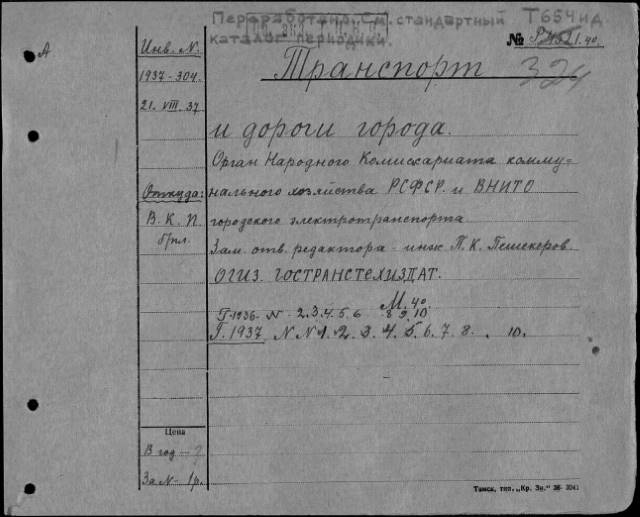 Переработано. См. стандартный Т654ид
каталог периодики.
А
Инв. N.
1937-304.
21. VIII. 37
Откуда:
В. К. П.
№ 1.40.
324
Транспорт
и дороги города.
Орган Народного Комиссариата комму-
нального хозяйства РСФСР. и ВНИТО
городского электротранспорта
Зам. отв. редактора - инж. П. К. Пешекеров
ОГИЗ. ГОСТРАНСТЕХИЗДАТ.
М. 40
Г. 1936 - N - 2. 3. 4. 5. 6 8 9 10
Г. 1937 N N 1. 2. 3. 4. 5. 6. 7. 8. . 10.
Цена
В год - ?
За N - 1р.
Томск, тип. „Кр. Зн.“ 36-3041